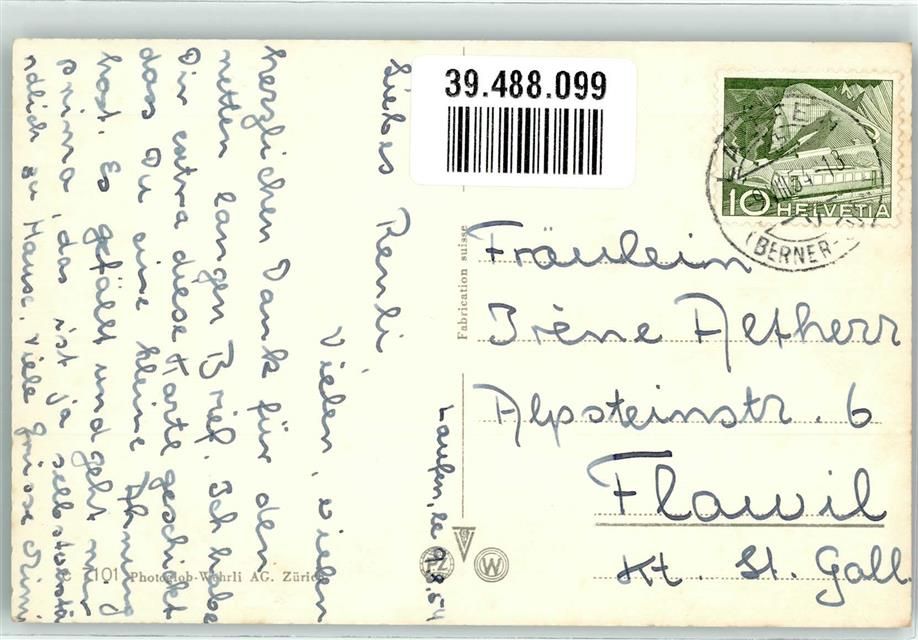 39.488.099
10 HELVETIA
(BERNER-
Laufen, le 9.8.54
Liebes Renli,
Vielen, vielen
herzlichen Dank für den
netten langen Brief. Ich habe
Dir extra diese Karte geschickt
dass Du eine kleine Ahnung
hast. Es gefällt und geht mir
prima, das ist ja selbstverstä
ndlich zu Hause. Viele Grüsse
Fabrication suisse
Fräulein
Irène Aetherr
Alpsteinstr. 6
Flawil
Kt. St. Gall.
7101 Photoglob-Wehrli AG. Zürich
PZ
W